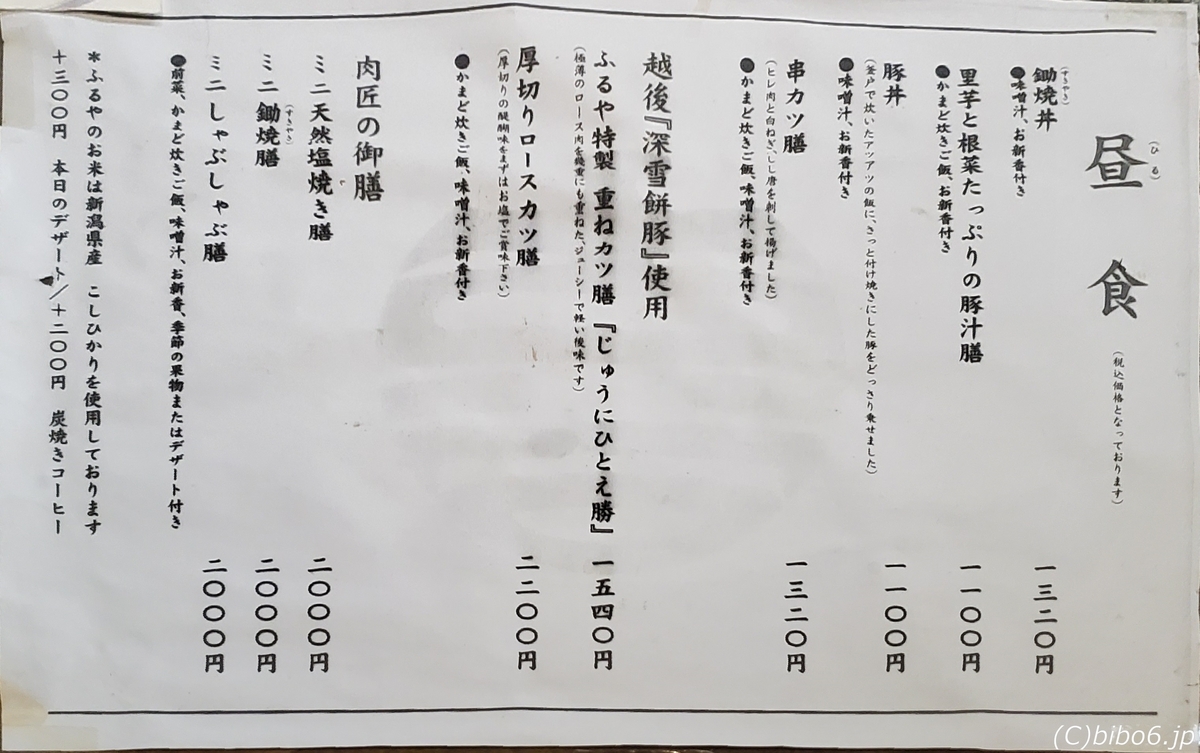 昼食
(ひる)
(税込価格となっております)
鋤焼丼 一三二〇円
(すきやき)
●味噌汁、お新香付き
里芋と根菜たっぷりの豚汁膳 一一〇〇円
●かまど炊きご飯、お新香付き
豚丼 一一〇〇円
(釜戸で炊いたアツアツの飯に、さっと付け焼きにした豚をどっさり乗せました)
●味噌汁、お新香付き
串カツ膳 一三二〇円
(ヒレ肉と白ねぎ、しし唐を刺して揚げました)
●かまど炊きご飯、味噌汁、お新香付き
越後『深雪餅豚』使用
ふるや特製 重ねカツ膳『じゅうにひとえ勝』 一五四〇円
(極薄のロース肉を幾重にも重ねた、ジューシーで軽い後味です)
厚切りロースカツ膳 二二〇〇円
(厚切りの醍醐味をまずはお塩でご賞味下さい)
●かまど炊きご飯、味噌汁、お新香付き
肉匠の御膳
ミニ天然塩焼き膳 二〇〇〇円
や
ミニ鋤焼膳 二〇〇〇円
(すきやき)
ミニしゃぶしゃぶ膳 二〇〇〇円
●前菜、かまど炊きご飯、味噌汁、お新香、季節の果物またはデザート付き
*ふるやのお米は新潟県産 こしひかりを使用しております
+三〇〇円 本日のデザート/+二〇〇円 炭焼きコーヒー
(C)bibo6.jp